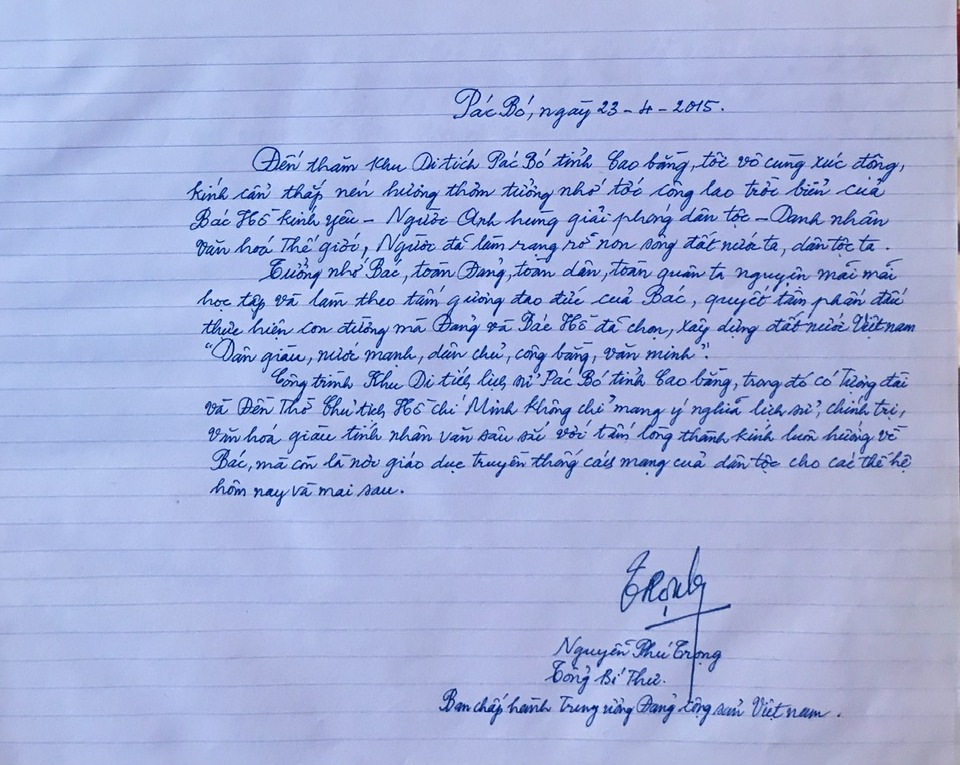 Pác Bó, ngày 23-4-2015.
Đến thăm Khu Di tích Pác Bó tỉnh Cao bằng, tôi vô cùng xúc động,
kính cẩn thắp nén hương thơm tưởng nhớ tới công lao trời biển của
Bác Hồ kính yêu - Người Anh hùng giải phóng dân tộc - Danh nhân
văn hoá Thế giới, Người đã làm rạng rỡ non sông đất nước ta, dân tộc ta.
Tưởng nhớ Bác, toàn Đảng, toàn dân, toàn quân ta nguyện mãi mãi
học tập và làm theo tấm gương đạo đức của Bác, quyết tâm phấn đấu
thực hiện con đường mà Đảng và Bác Hồ đã chọn, xây dựng đất nước Việt nam
"Dân giàu, nước mạnh, dân chủ, công bằng, văn minh".
Công trình Khu Di tích lịch sử Pác Bó tỉnh Cao bằng, trong đó có Tượng đài
và Đền Thờ Chủ tịch Hồ Chí Minh không chỉ mang ý nghĩa lịch sử, chính trị,
văn hoá giàu tính nhân văn sâu sắc với tấm lòng thành kính luôn hướng về
Bác, mà còn là nơi giáo dục truyền thống cách mạng của dân tộc cho các thế hệ
hôm nay và mai sau.
Trọng
Nguyễn Phú Trọng
Tổng Bí Thư.
Ban chấp hành Trung ương Đảng cộng sản Việt nam.